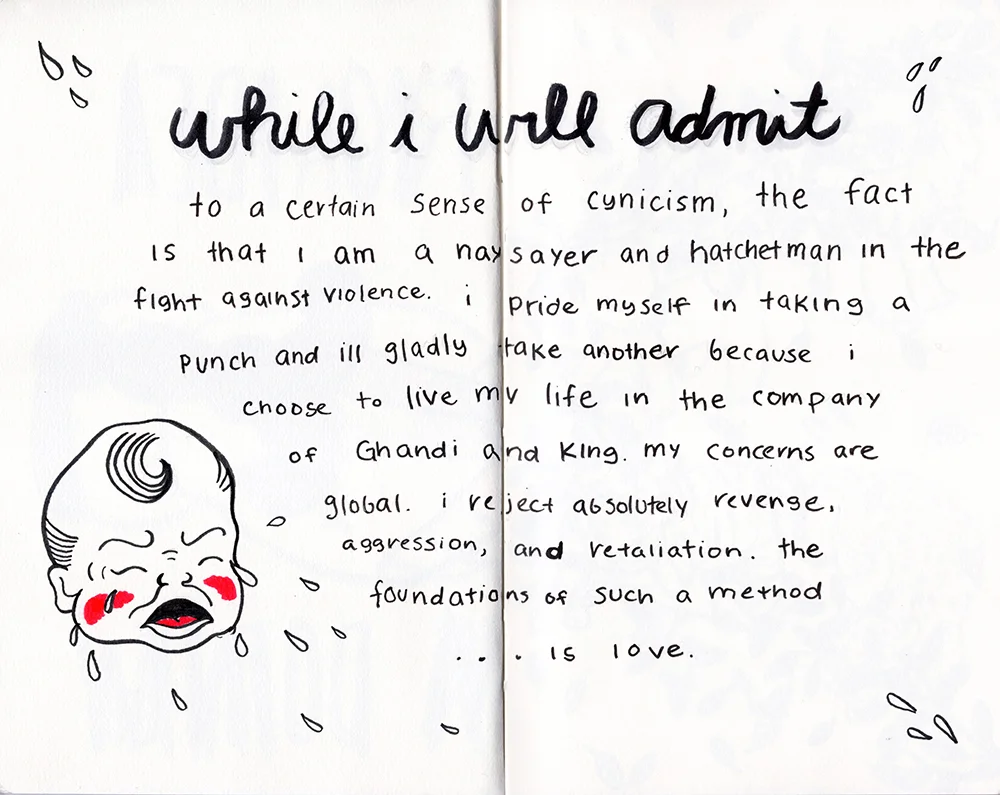 while i will admit
to a certain sense of cynicism, the fact
is that i am a naysayer and hatchetman in the
fight against violence. i pride myself in taking a
punch and ill gladly take another because i
choose to live my life in the company
of Ghandi and King. my concerns are
global. i reject absolutely revenge,
aggression, and retaliation. the
foundations of such a method
... is love.